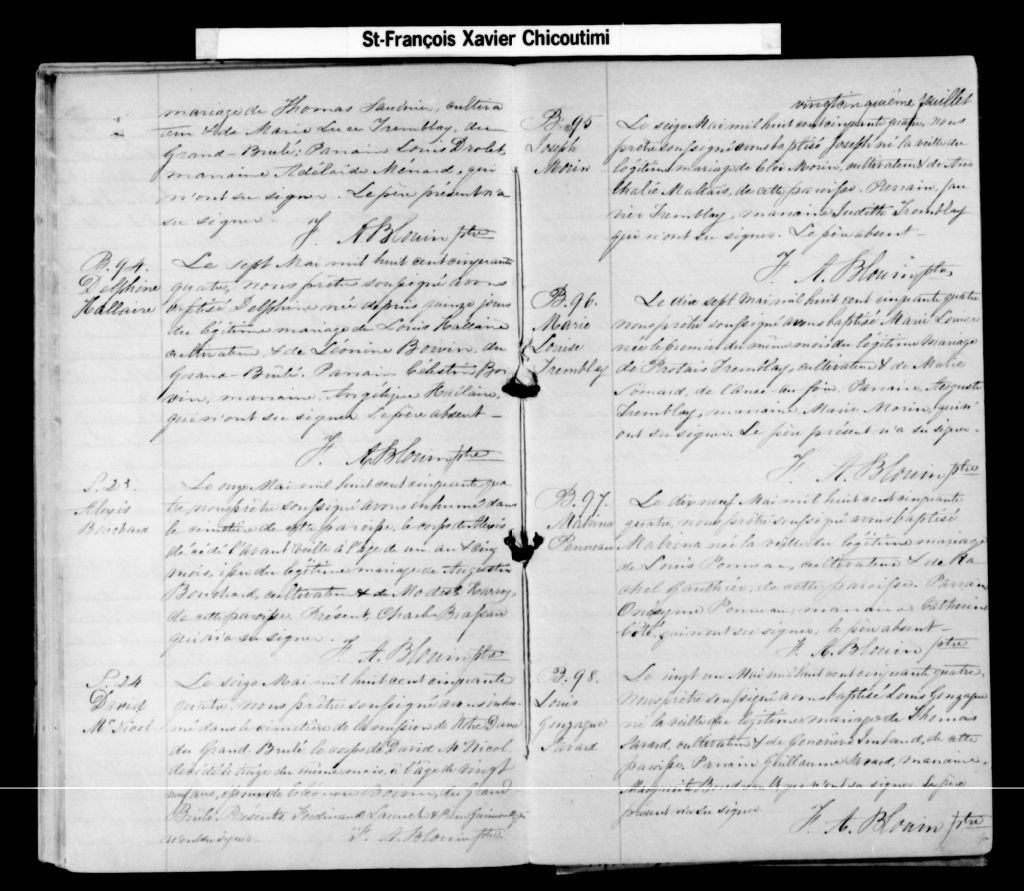 St-François Xavier Chicoutimi
mariage de Thomas cultiva
teur & de Marie Luce Tremblay, du
Grand-Brulé; Parrain Louis Drolet,
marraine Adélaïde Ménard, qui
n'ont su signer. Le père présent n'a
su signer.
F. A. Blouin ptre
B. 94.
Delphine
Hallaire
Le sept Mai mil huit cent cinquante
quatre, nous prêtre soussigné avons
baptisé Delphine née depuis quinze jours
du légitime mariage de Louis Hallaire
cultivateur & de Léonine Boivin, du
Grand-Brûlé. Parrain Célestin Boi
vin, marraine Angélique Hallaire,
qui n'ont su signer. Le père absent-
F. A. Blouin ptre
S. 23.
Alexis
Bouchard
Le onze Mai mil huit cent cinquante qua
tre, nous prêtre soussigné avons inhumé dans
le cimetière de cette paroisse, le corps d'Alexis
décédé l'avant veille à l'âge de un an & cinq
mois, issu du légitime mariage de Augustin
Bouchard, cultivateur & de Modeste Harvey,
de cette paroisse. Présent, Charles Brassau
qui n'a su signer.
F. A. Blouin ptre
S. 24
David
McNicol
Le seize Mai mil huit cent cinquante
quatre, nous prêtre soussigné avons inhu-
mé dans le cimetière de la mission de Notre Dame
du Grand Brulé le corps de David McNicol
décédé le treize du même mois, à l'âge de vingt
ans, époux de Eléonore du Grand
Brûlé. Présents Ferdinand &
F. A. Blouin ptre
vingtcinquième feuillet
B. 95
Joseph
Morin
Le seize Mai mil huit cent cinquante quatre, nous
prêtre soussigné avons baptisé Joseph né la veille du
légitime mariage de Eloi Morin, cultivateur & de
Maltais, de cette paroisse. Parrain, Jan
vier Tremblay, marraine Judith Tremblay
qui n'ont su signer. Le père absent-
F. A. Blouin ptre
B. 96.
Marie
Louise
Tremblay
Le dix sept Mai mil huit cent cinquante quatre
nous prêtre soussigné avons baptisé Marie Louise
née le premier du même mois du légitime mariage
de Protais Tremblay, cultivateur & de Marie
Simard, de l'Anse-au-foin. Parrain, Auguste
Tremblay, marraine Marie Morin, qui n'
ont su signer. Le père présent n'a su signer-
F. A. Blouin ptre
B. 97.
Malvina
Ponneau
Le dix neuf Mai mil huit cent cinquante
quatre, nous prêtre soussigné avons baptisé
Malvina née la veille du légitime mariage
de Louis Ponneau, cultivateur & de Ra
chel Gauthier, de cette paroisse. Parrain
Onésyme Ponneau, marraine Catherine
Côté, qui n'ont su signer, le père absent-
F. A. Blouin ptre
B. 98.
Louis
Gonzague
Savard
Le vingt un Mai mil huit cent cinquante quatre,
nous prêtre soussigné avons baptisé Louis Gonzague
né la veille du légitime mariage de Thomas
Savard, cultivateur & de Geneviève Imbaud, de cette
paroisse. Parrain Guillaume Savard, marraine,
Marguerite Boudreault qui n'ont su signer. Le père
présent n'a su signer
F. A. Blouin ptre